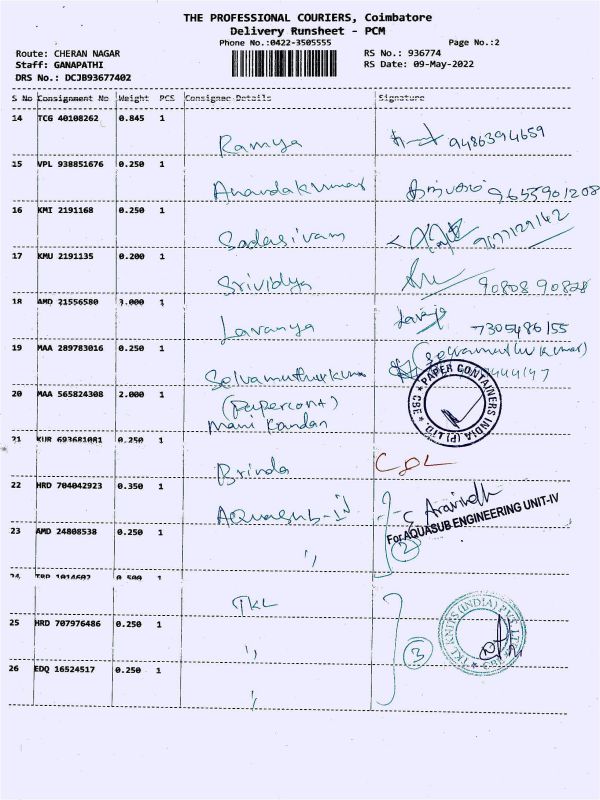 THE PROFESSIONAL COURIERS, Coimbatore
Delivery Runsheet - PCM
Phone No.:0422-3505555 Page No.:2
Route: CHERAN NAGAR RS No.: 936774
Staff: GANAPATHI RS Date: 09-May-2022
DRS No.: DCJB93677402
S No Consignment No Weight PCS Consignee Details Signature
14 TCG 40108262 0.845 1
Ramya 9486394659
15 VPL 938851676 0.250 1
Anandakumar 9655901208
16 KMI 2191168 0.250 1
Sadasivam 9677129142
17 KMU 2191135 0.200 1
Srividya 90808 90808
18 AMD 21556580 3.000 1
Lavanya 7305486155
19 MAA 289783016 0.250 1
Selvamuthukumar (Selvamuthu kumar)
20 MAA 565824308 2.000 1
(Papercont)
Mani Kandan
PAPER CONTAINERS INDIA (P) LTD. * CBE *
21 KUR 693681081 0.250 1
Brinda
22 HRD 704042923 0.350 1
Aquasub-IV Aravindh
For AQUASUB ENGINEERING UNIT-IV
23 AMD 24808538 0.250 1
" 2
24 TRP 1014602 0.500 1
TKL
25 HRD 707976486 0.250 1
" 3
TKL KNITS (INDIA) PVT LTD * CBE *
26 EDQ 16524517 0.250 1
"